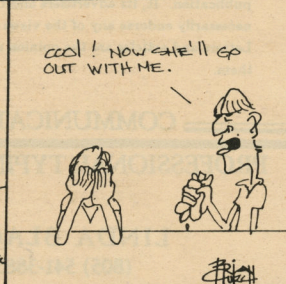 COOL! NOW SHE'LL GO
OUT WITH ME.